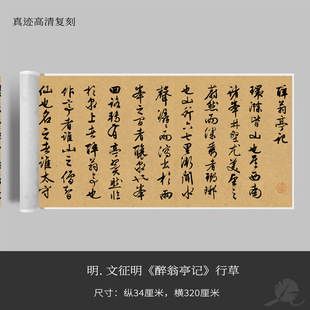 真迹高清复刻
醉翁亭記
環滁皆山也其西南
諸峯林壑尤美望之
蔚然而深秀者琅琊
也山行六七里漸聞水
聲潺潺而出於兩
峯之間者釀泉也峯
回路轉有亭翼然臨
於泉上者醉翁亭也
作亭者誰山之僧智
仙也名之者誰太守
明.文征明《醉翁亭记》行草
尺寸：纵34厘米，横320厘米